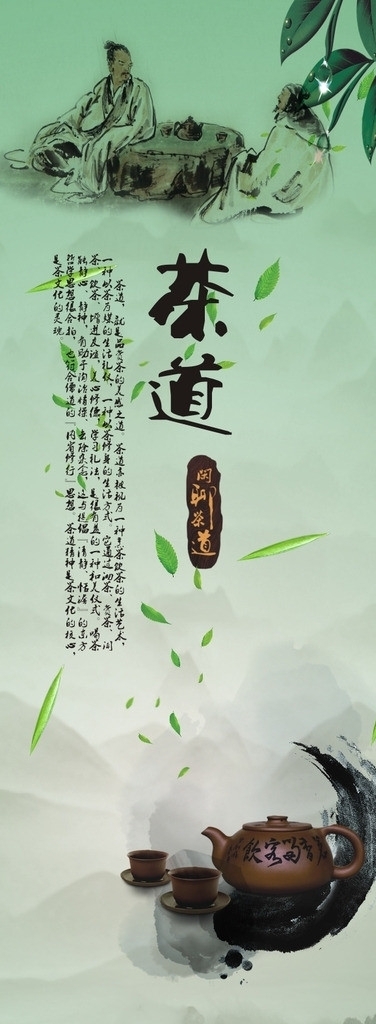 茶道
闲聊茶道
茶道，就是品赏茶的美感之道。茶道亦被视为一种烹茶饮茶的生活艺术，
一种以茶为媒的生活礼仪，一种以茶修身的生活方式。它通过沏茶、赏茶、闻
茶、饮茶、增进友谊，美心修德，学习礼法，是很有益的一种和美仪式。喝茶
能静心、静神，有助于陶冶情操、去除杂念，这与提倡“清静、恬澹”的东方
哲学思想很合拍，也符合佛道的“内省修行”思想。茶道精神是茶文化的核心，
是茶文化的灵魂